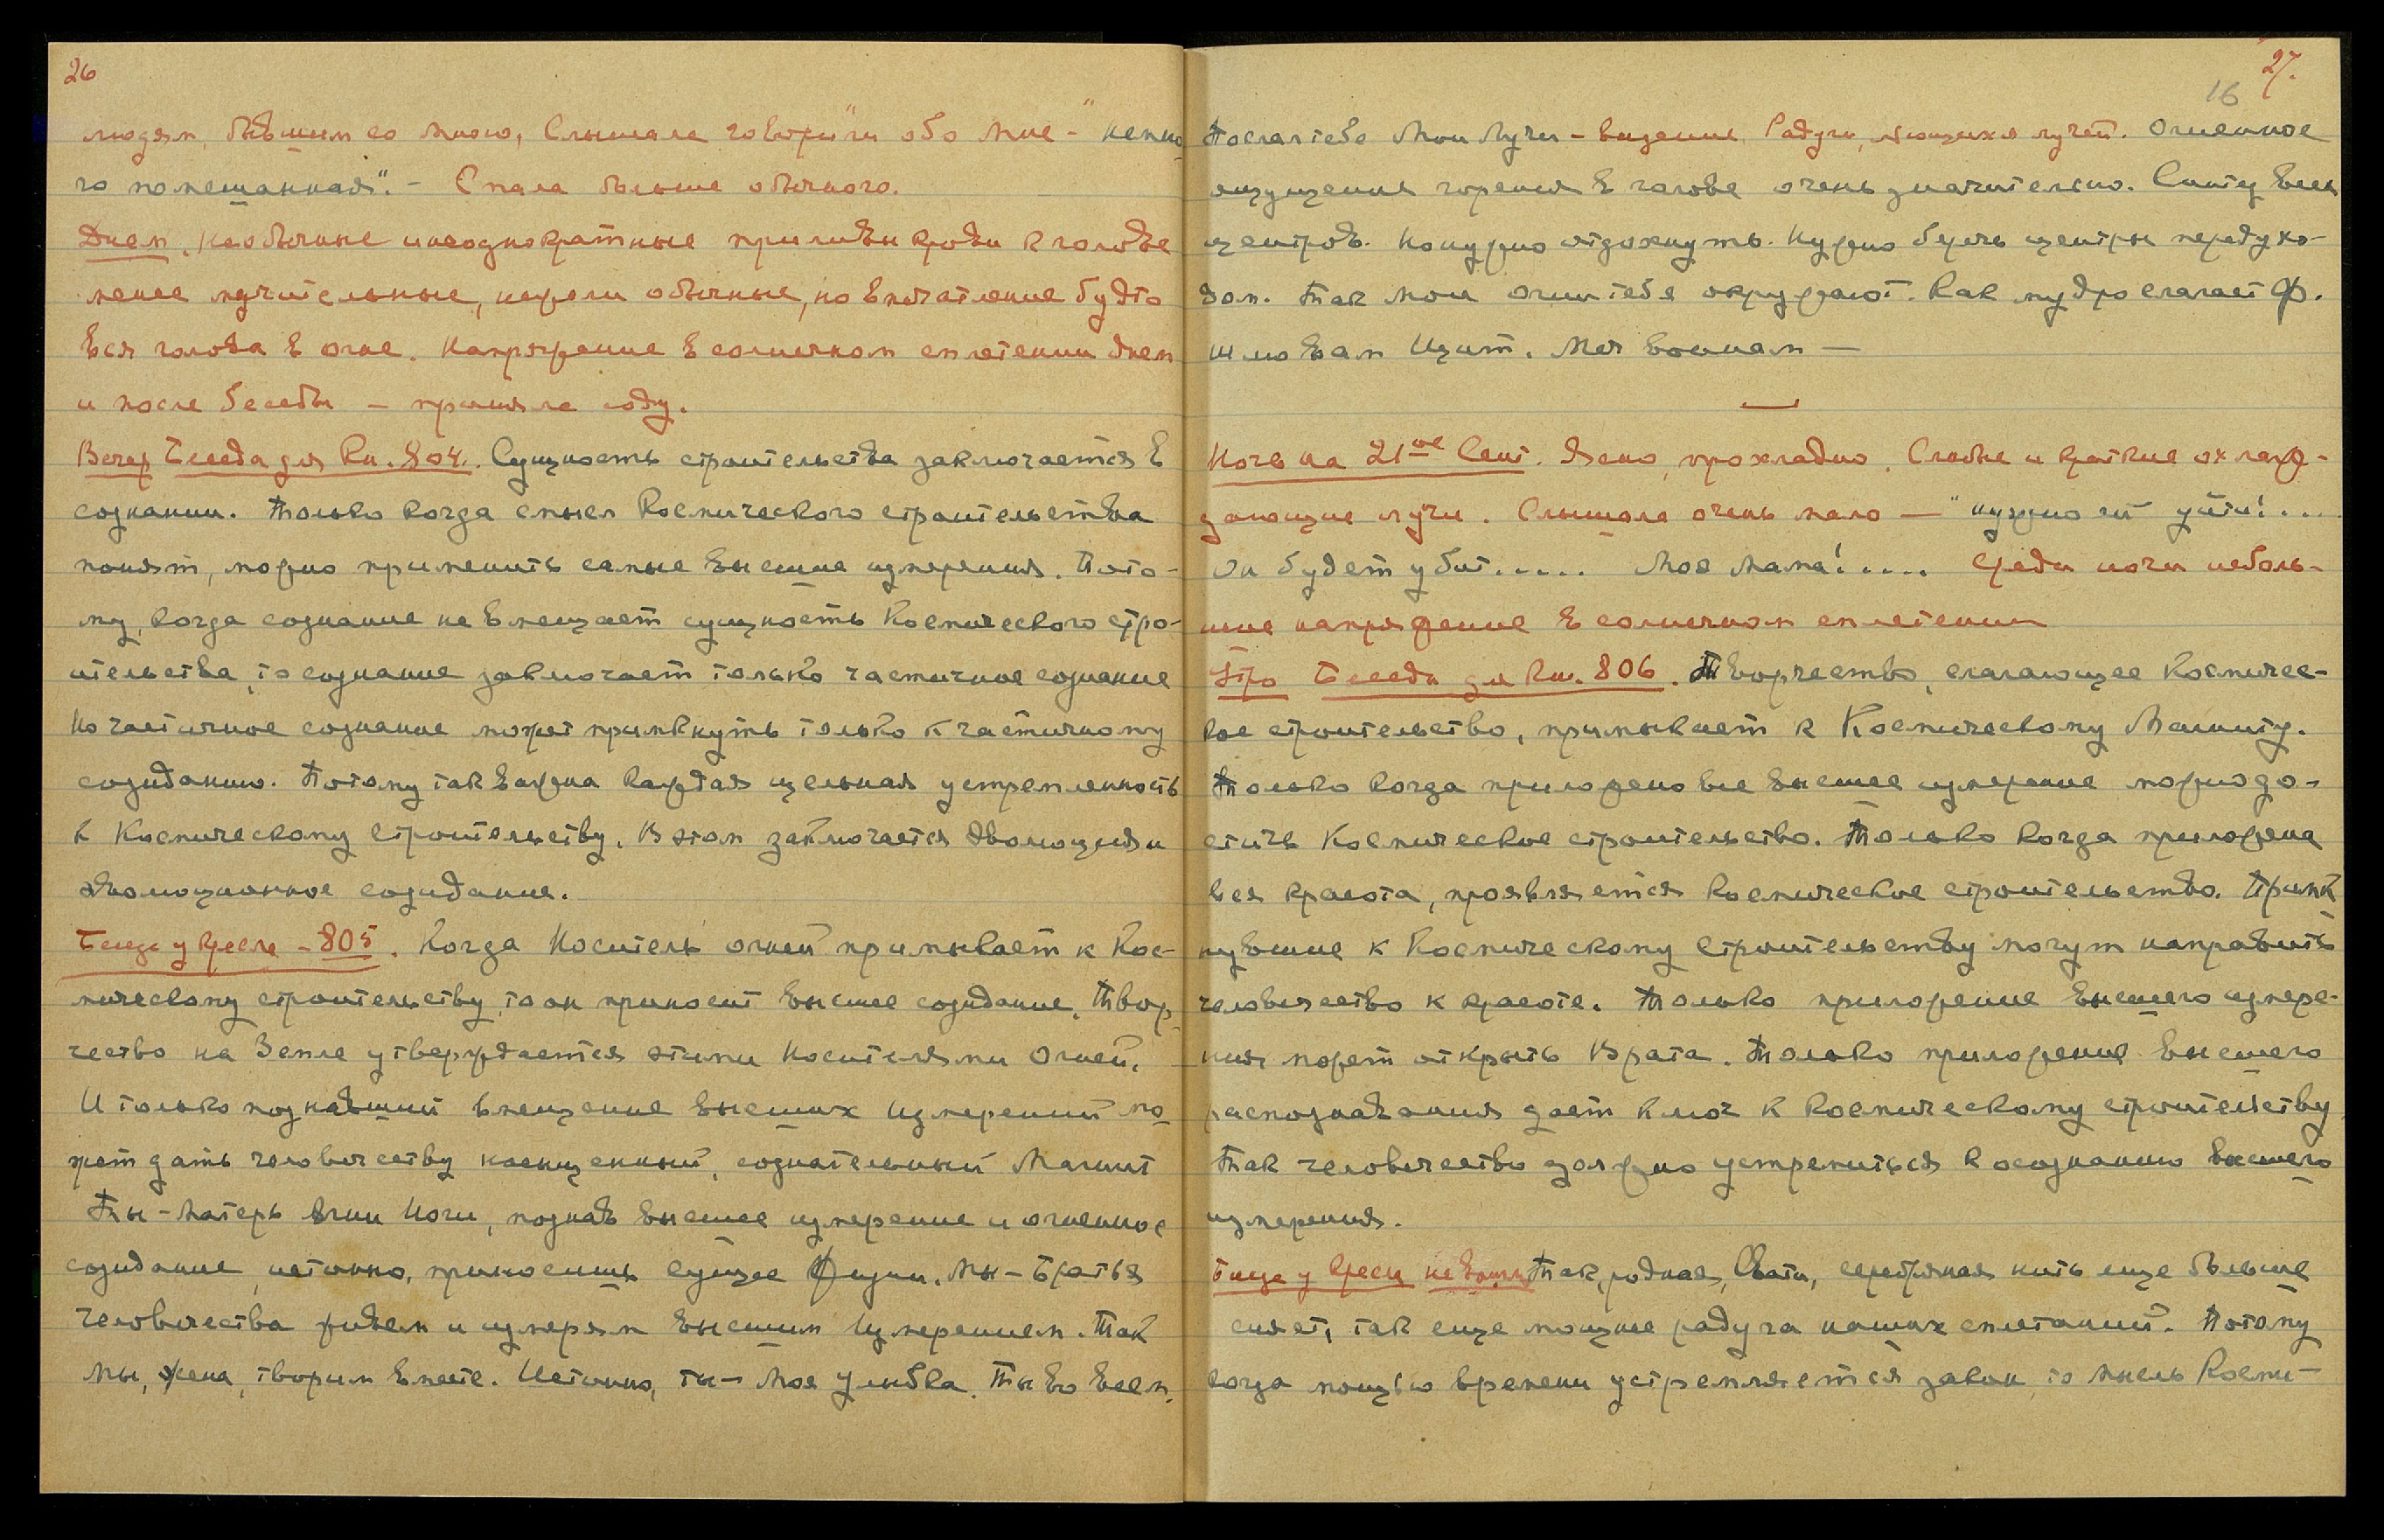 26
людям, бывшим со мною, Слышала говорили обо мне - "немно
го помешанная". - Спала больше обычного.
Днем. Необычные и неоднократные приливы крови к голове
менее мучительные, нежели обычные, но впечатление будто
вся голова в огне. Напряжение в солнечном сплетении днем
и после беседы - приняла соду.
Вечер Беседа для Кн. 804. Сущность строительства заключается в
сознании. Только когда смысл Космического строительства
понят, можно применить самые высшие измерения. Пото-
му, когда сознание не вмещает сущность Космического стро-
ительства, то сознание заключает только частичное сознание
Но частичное сознание может примкнуть только к частичному
созиданию. Потому так важна каждая цельная устремленность
к Космическому строительству. В этом заключается эволюция и
эволюционное созидание.
Беседа у кресла - 805. Когда Носитель огней примыкает к Кос-
мическому строительству, то он приносит высшее созидание. Твор-
чество на Земле утверждается этими Носителями Огней.
И только познавший вмещение высших измерений мо
жет дать человечеству насыщенный, сознательный Магнит
Ты - Матерь Агни Йоги, познав высшее измерение и огненное
созидание, истинно, приносишь сущее Жизни. Мы - Братья
человечества живем и измеряем высшим Измерением. Так
мы, жена, творим вместе. Истинно, ты - Моя улыбка. Ты во всем.
27.
16
Послал тебе Мои Лучи - видение Радуги, лучей. Огненное
ощущение горения в голове очень значительно. Синтез всех
центров. Но нужно отдохнуть. Нужно беречь центры перед ухо-
дом. Так мои огни тебя окружают. Как мудро слагает Ф.
Шлю вам Щит. Меч воинам —
Ночь на 21ое Сент. Ясно, прохладно. Слабые и краткие охлаж-
дающие лучи. Слышала очень мало — "нужно ей уйти!...
Он будет убит..... Моя Мама!.... Среди ночи неболь-
шие напряжение в солнечном сплетении
Утро Беседа для Кн. 806. Творчество, слагающее Космичес-
кое строительство, примыкает к Космическому Магниту.
Только когда приложено все высшее измерение можно до-
стичь Космическое строительство. Только когда приложена
вся красота, проявляется Космическое строительство. Примк
нувшие к Космическому строительству могут направить
человечество к красоте. Только приложение высшего измере-
ния может открыть Врата. Только приложение высшего
распознавания дает ключ к Космическому строительству
Так человечество должно устремиться к осознанию высшего
измерения.
Беседа у кресла Так, родная, Свати, серебряная нить еще больше
сияет, так еще мощнее радуга наших сплетаний. Потому
когда мощью времени устремляется закон, то мысль Косми-